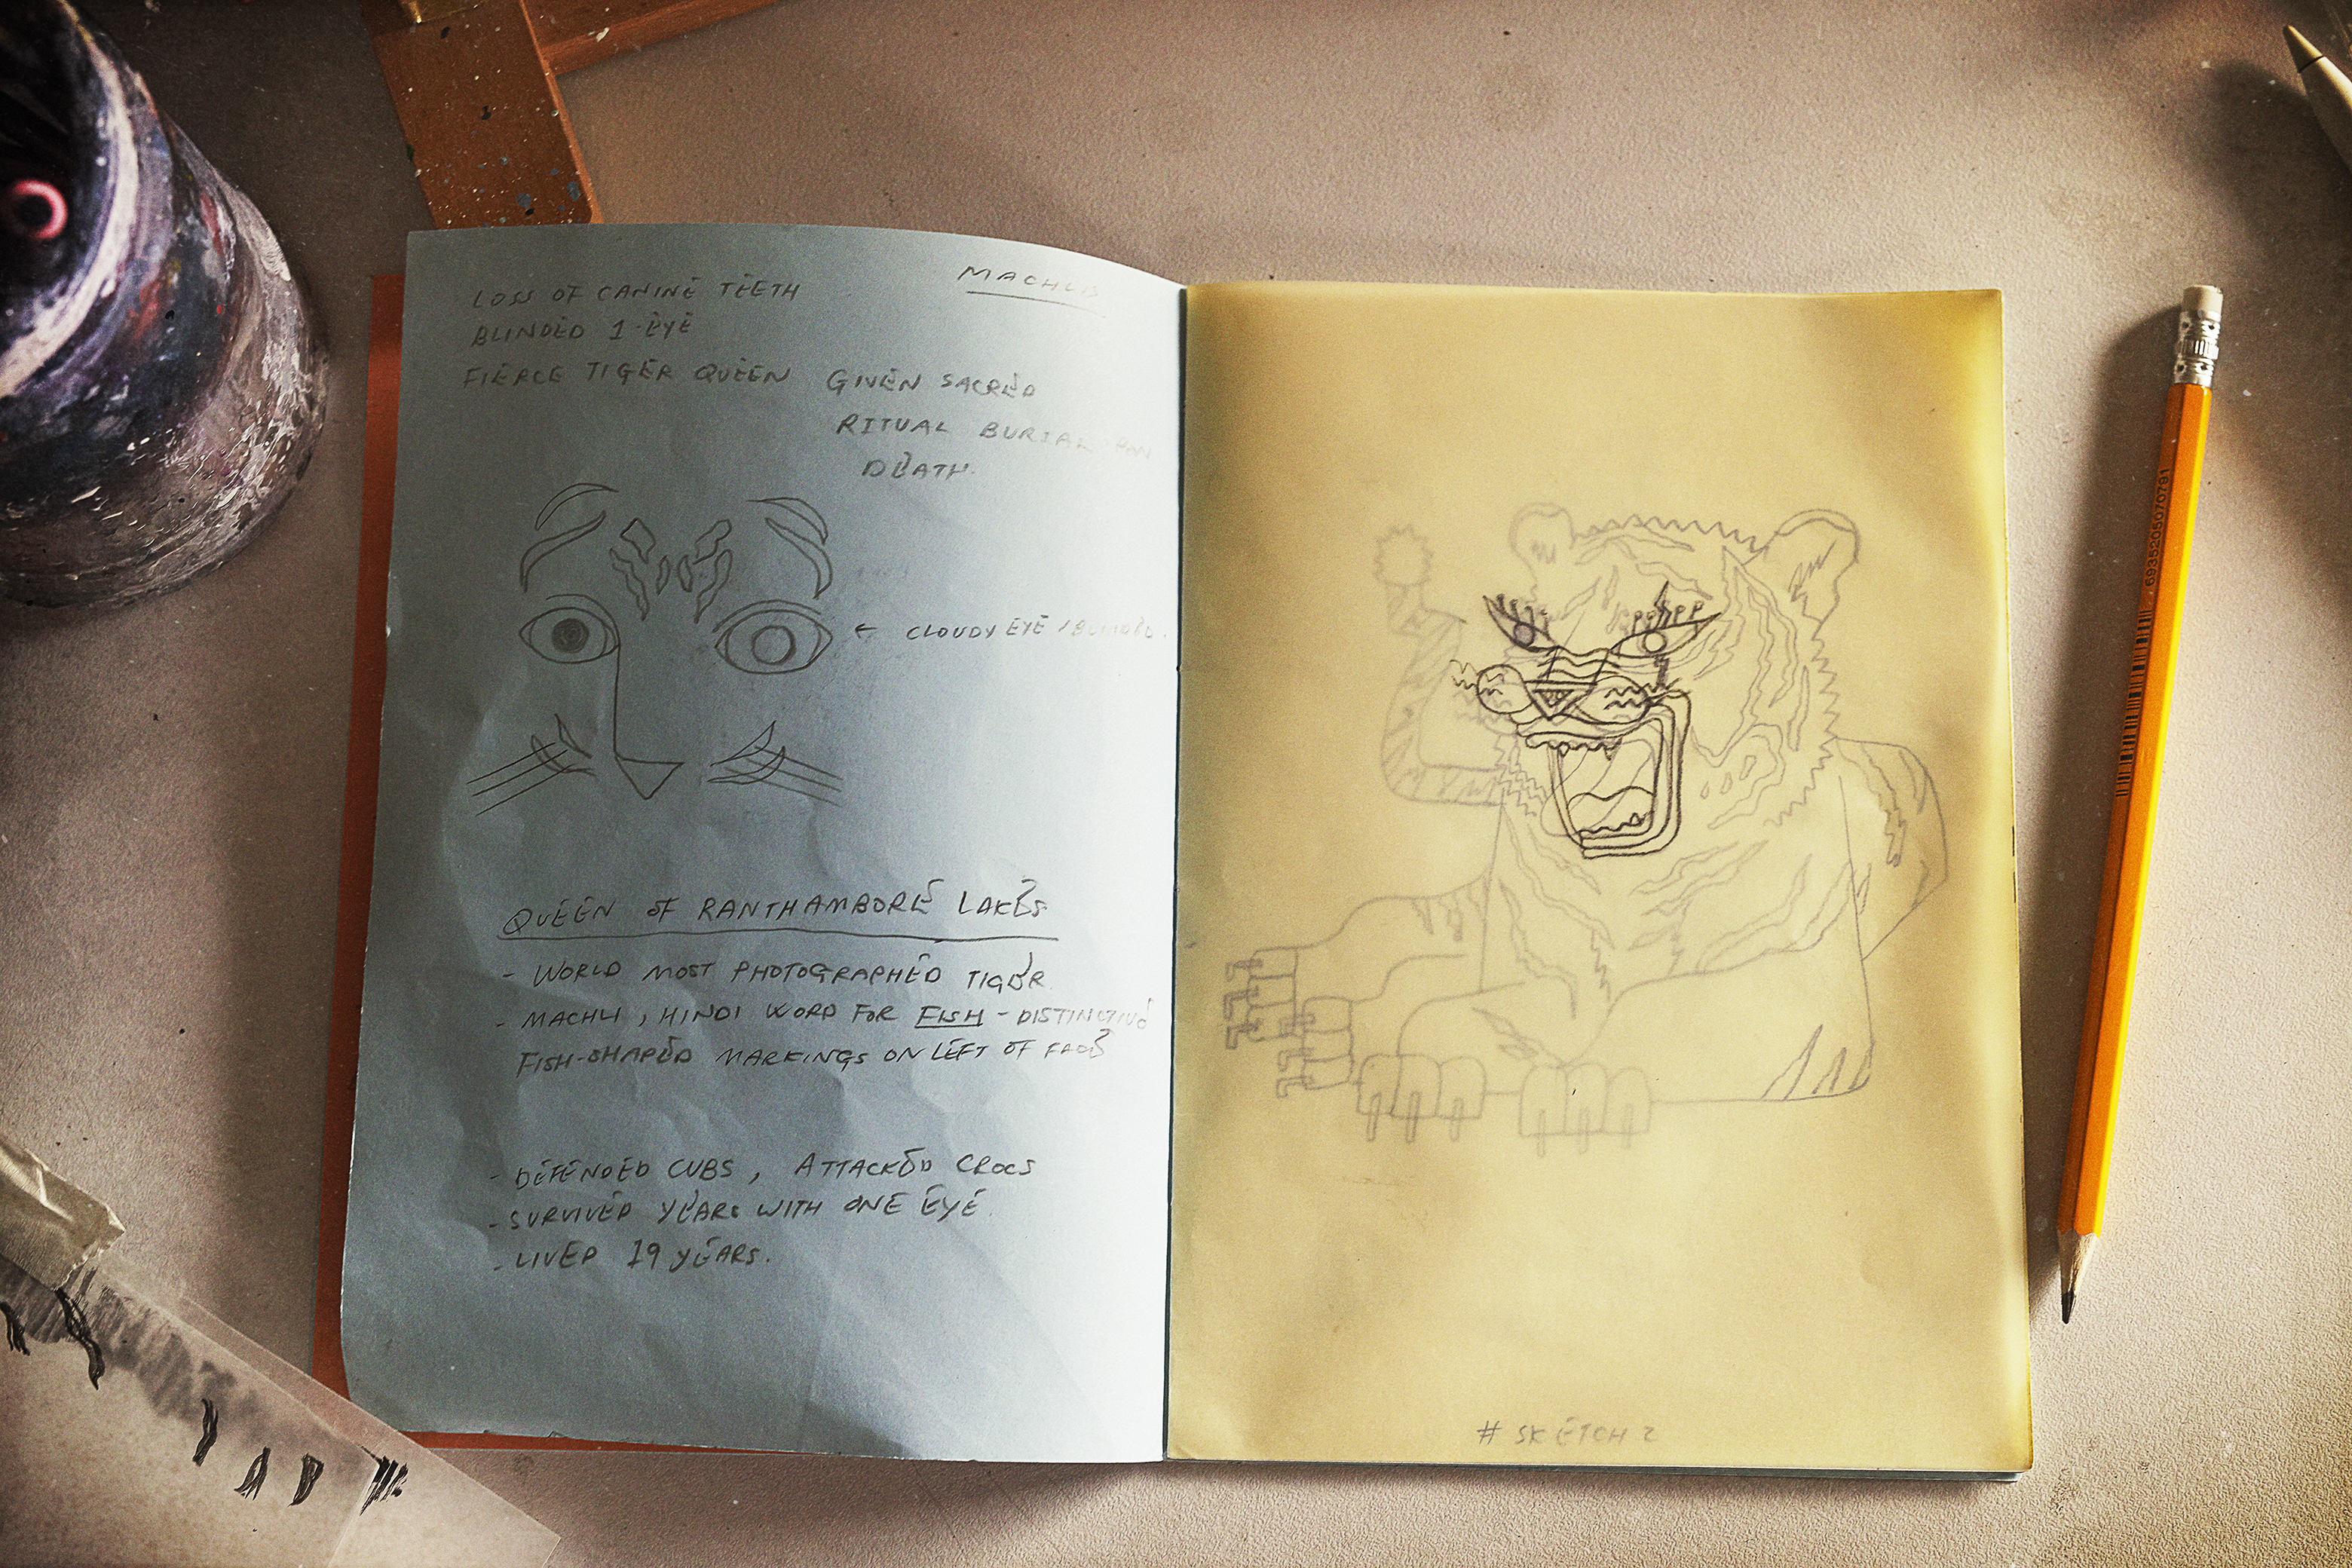 MACHLI
LOSS OF CANINE TEETH
BLINDED 1-EYE
FIERCE TIGER QUEEN
GIVEN SACRED
RITUAL BURIAL
DEATH.
← CLOUDY EYE / BLINDED.
QUEEN OF RANTHAMBORE LAKES
- WORLD MOST PHOTOGRAPHED TIGER
- MACHLI, HINDI WORD FOR FISH - DISTINCTIVE
FISH-SHAPED MARKINGS ON LEFT OF FACE
- DEFENDED CUBS, ATTACKED CROCS
- SURVIVED YEARS WITH ONE EYE.
- LIVED 19 YEARS.
# SKETCH 2
6935205070791